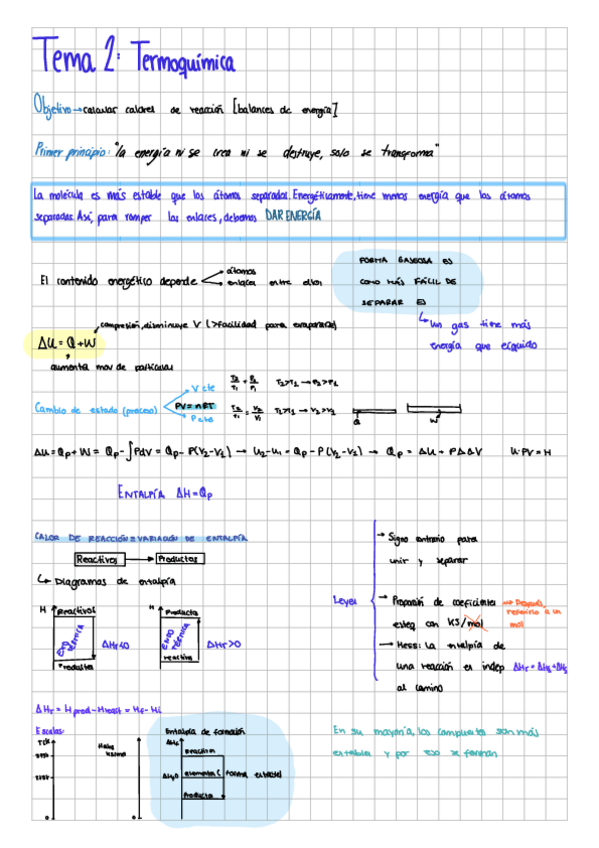 Tema 2: Termoquímica
Objetivo → calcular calores de reacción [balances de energía]
Primer principio: "la energía ni se crea ni se destruye, solo se transforma"
La molécula es más estable que los átomos separados. Energéticamente, tiene menos energía que los átomos
separados. Así, para romper los enlaces, debemos DAR ENERGÍA
FORMA GASEOSA ES
COMO MÁS FÁCIL DE
SEPARAR ES
El contenido energético depende
átomos
enlaces entre ellos
un gas tiene más
energía que
compresión, disminuye V (>facilidad para evaporarse)
ΔU = Q + W
aumenta mov de partículas
Cambio de estado (proceso)
V cte
PV = nRT
P cte
T2/T1 = P2/P1 T2>T1 → P2>P1
T2/T1 = V2/V1 T2>T1 → V2>V1
Q
W
ΔU = Qp + W = Qp - ∫PdV = Qp - P(V2-V1) → U2-U1 = Qp - P(V2-V1) → Qp = ΔU + PΔV
ENTALPÍA ΔH = Qp
CALOR DE REACCIÓN = VARIACIÓN DE ENTALPÍA
Reactivos → Productos
↳ Diagramas de entalpía
H
Reactivos
Productos
ΔHr<0
H
Producto
ENDOTÉRMICA
reactivos
ΔHr>0
Leyes
→ Signo contrario para
unir y separar
→ Proporción de coeficientes
esteq con KJ/mol
→ Después,
referirlo a un
mol
→ Hess: La entalpía de
una reacción es indep
al camino
ΔHr = Hprod - Hreact = Hf - Hi
Escalas:
Entalpía de formación
reactivos
elementos (forma estable)
Producto
En su mayoría, los compuestos son más
estables y por eso se forman